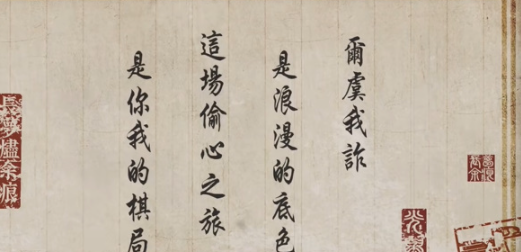 爾虞我詐
是浪漫的底色
這場偷心之旅
是你我的棋局
長夢燼余痕